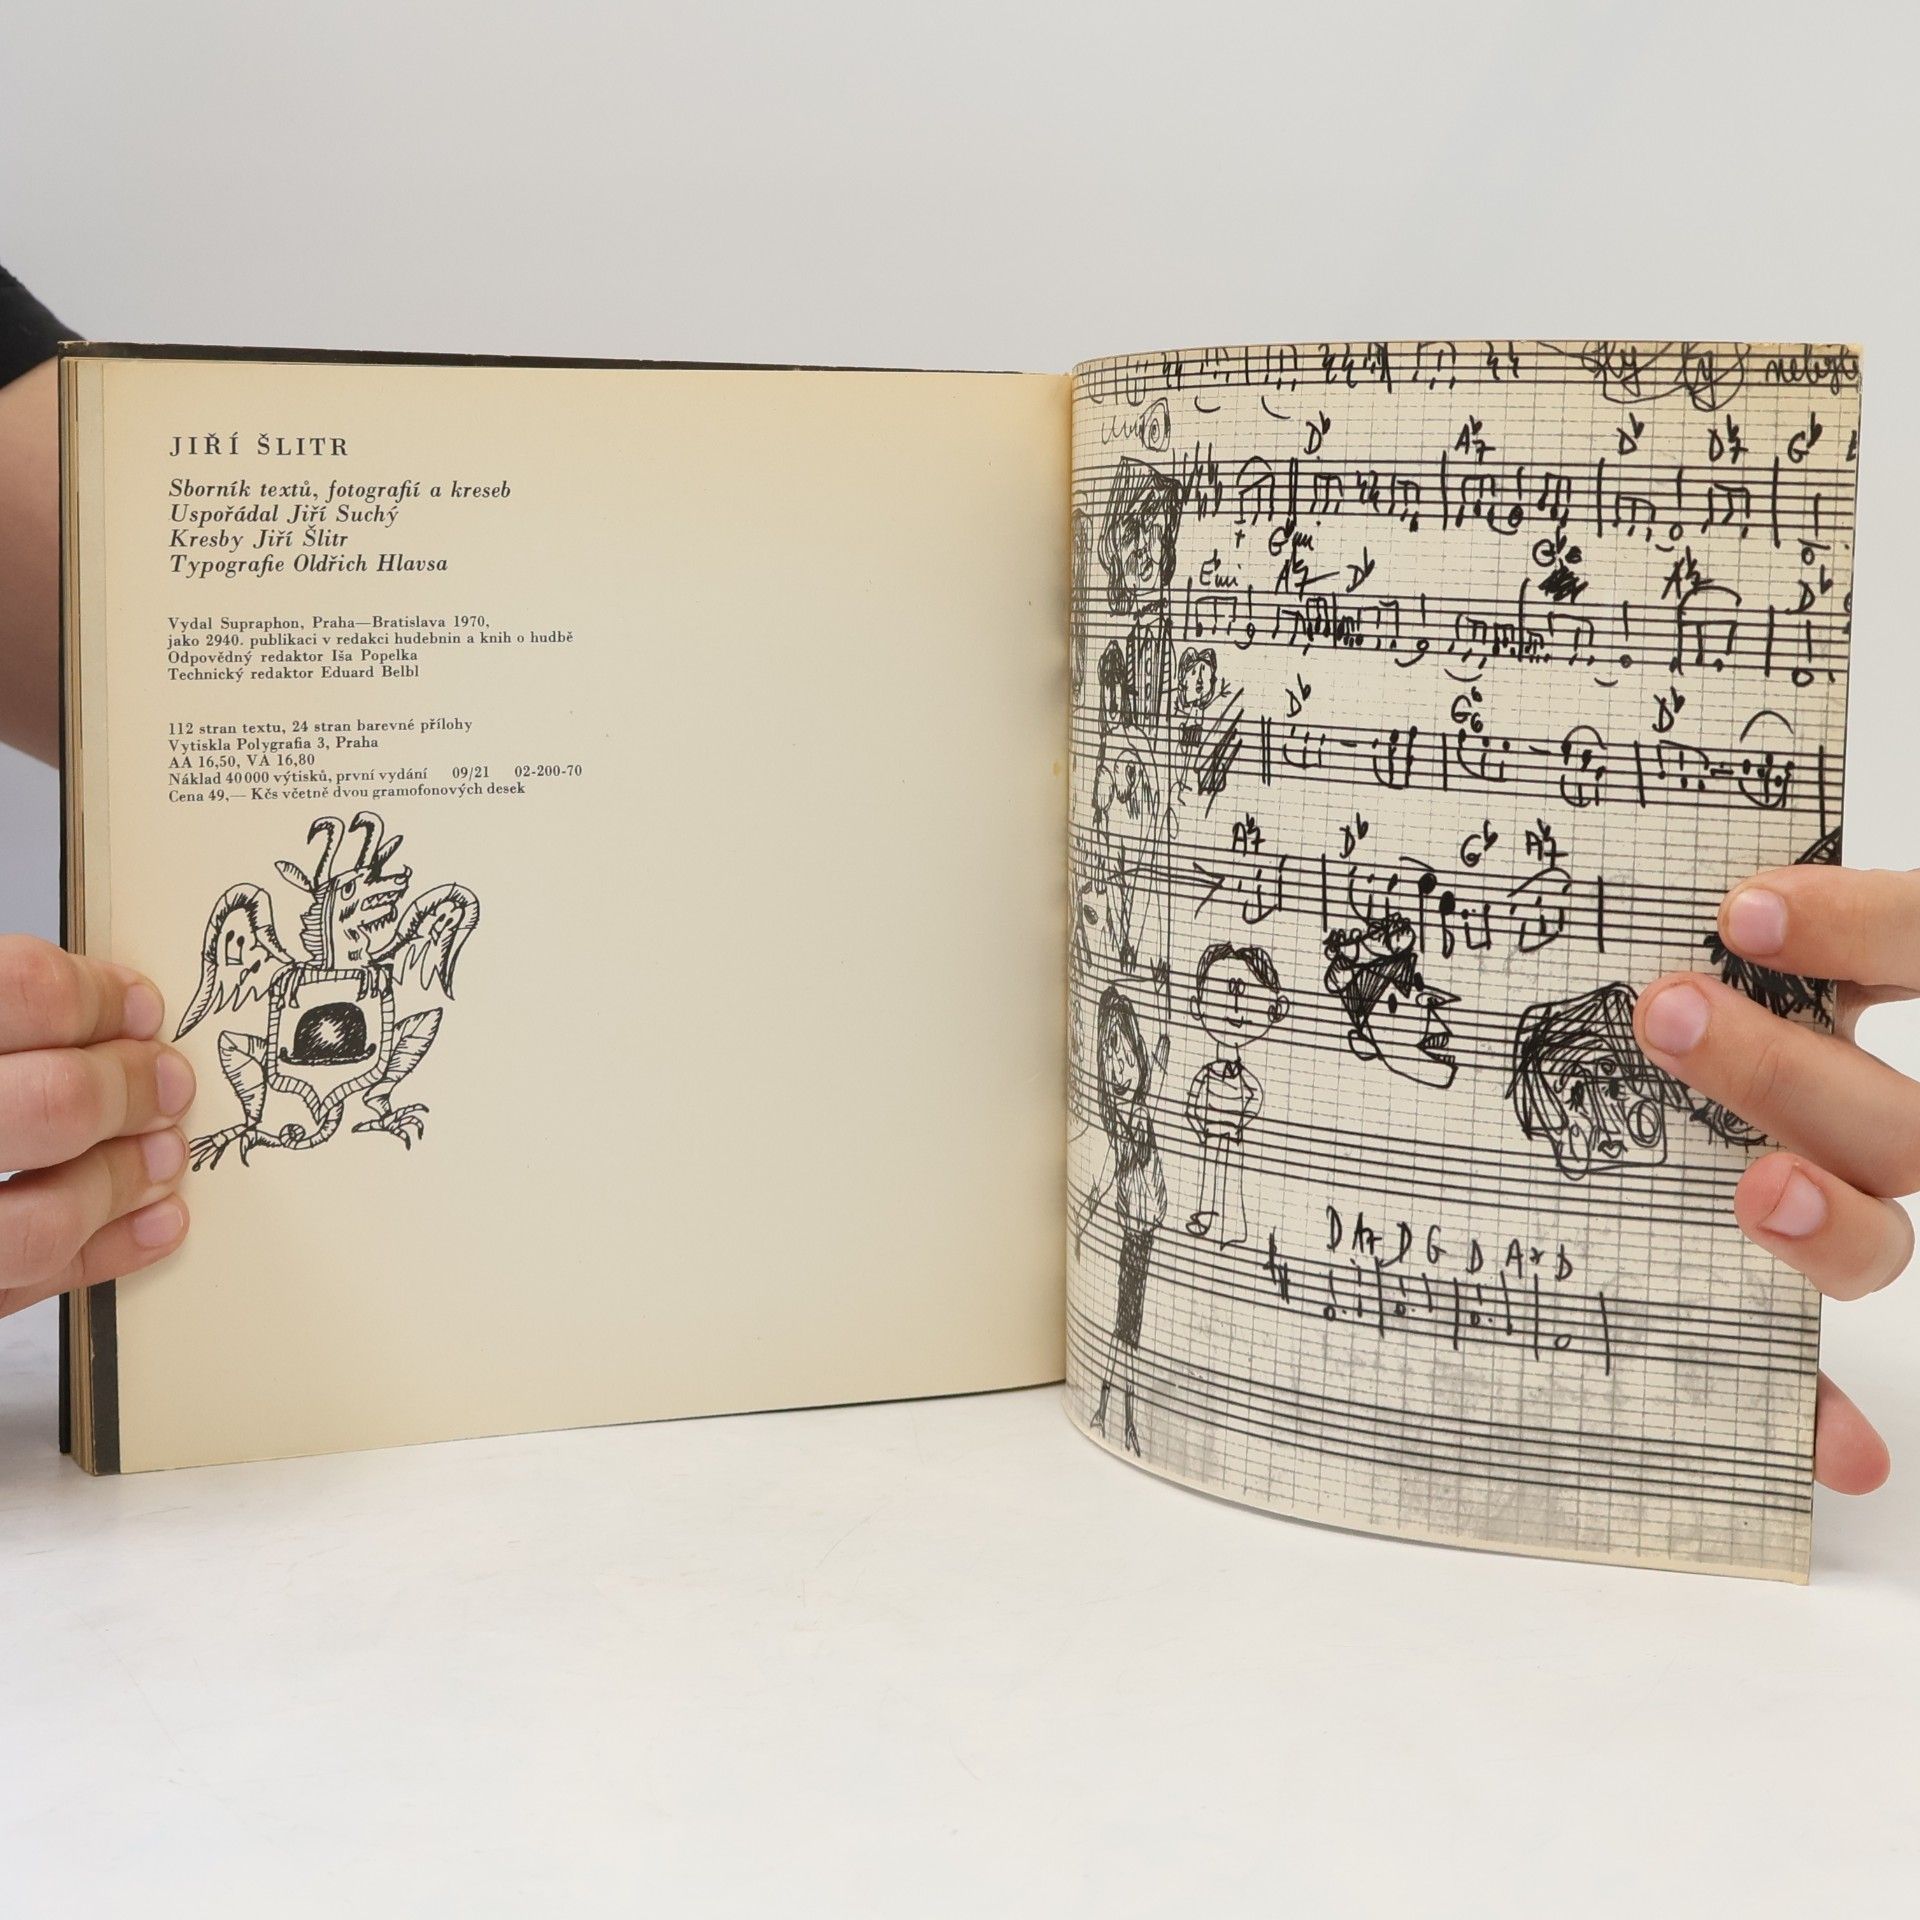 JIŘÍ ŠLITR
Sborník textů, fotografií a kreseb
Uspořádal Jiří Suchý
Kresby Jiří Šlitr
Typografie Oldřich Hlavsa
Vydal Supraphon, Praha—Bratislava 1970,
jako 2940. publikaci v redakci hudebnin a knih o hudbě
Odpovědný redaktor Iša Popelka
Technický redaktor Eduard Belbl
112 stran textu, 24 stran barevné přílohy
Vytiskla Polygrafia 3, Praha
AA 16,50, VA 16,80
Náklad 40 000 výtisků, první vydání 09/21 02-200-70
Cena 49,— Kčs včetně dvou gramofonových desek
D♭ A♭7 D♭ D♭7 G♭
G♭mi
E♭mi A♭7 D♭ A♭7 D♭
D♭ G♭6 D♭
A♭7 D♭ G♭ A♭7
D A7 D G D A7 D